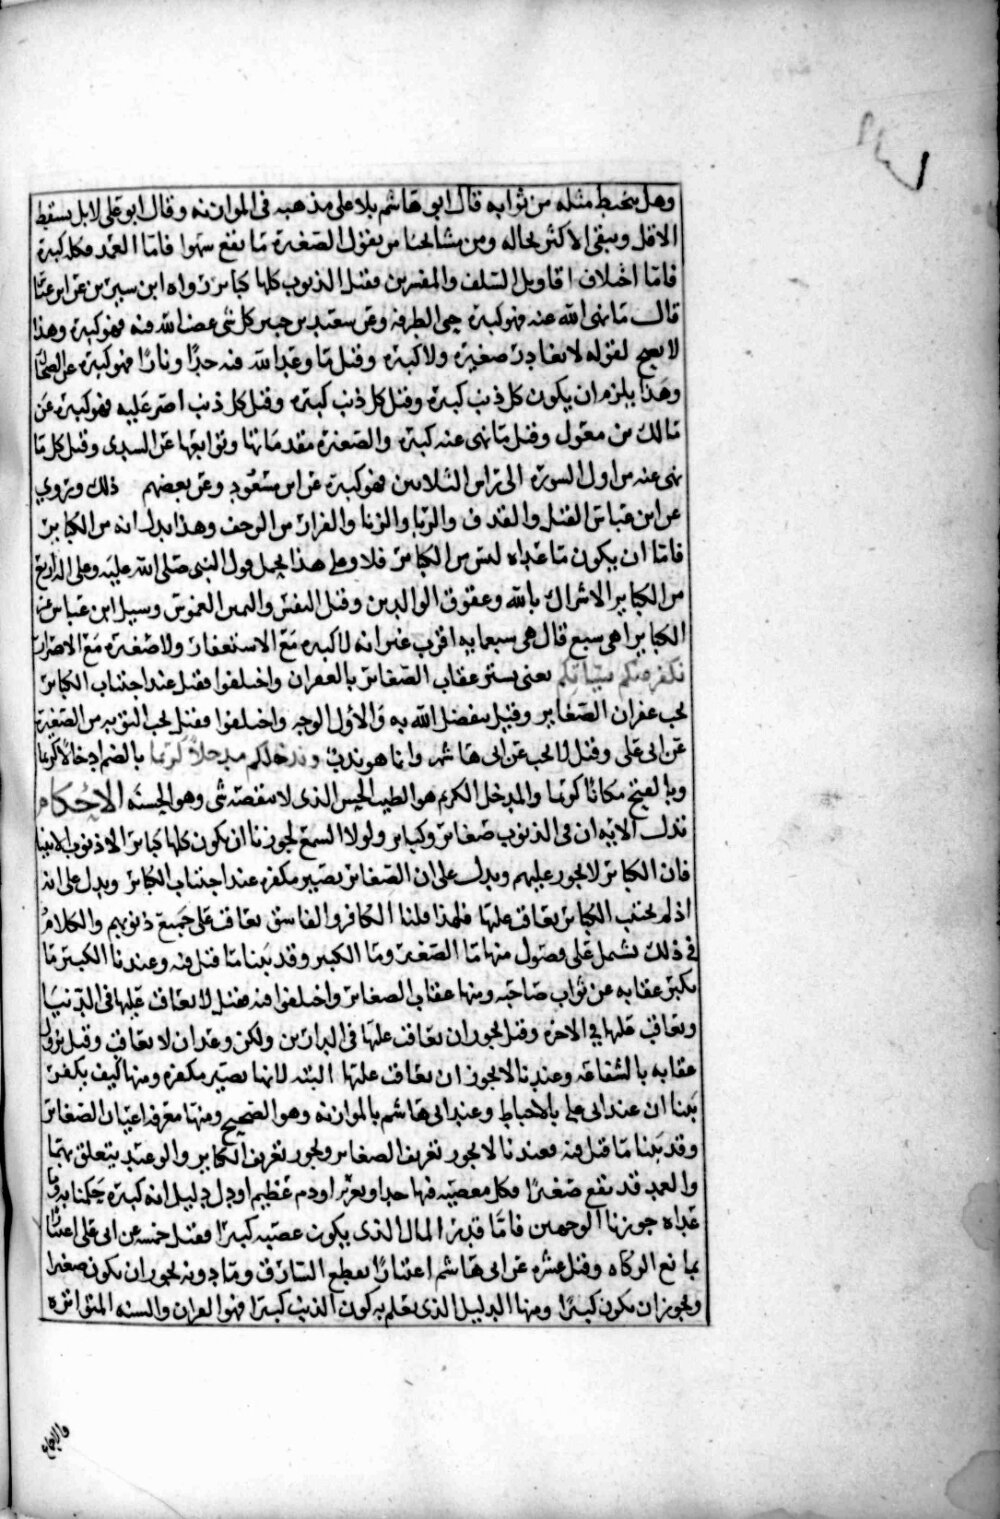 وهل ينحبط مثله من ثوابه قال ابو هاشم بلا على مذهبه في الموازنه وقال ابو علي لا بل يسقط
الاقل ويبقى الاكثر بحاله ومن مشايخنا من يقول الصغيرة ما يقع سهوا فاما العمد فكله كبيرة
فاما اختلاف اقاويل السلف والمفسرين فقيل الذنوب كلها كبائر رواه ابن سيرين عن ابن عباس
قال ما نهى الله عنه فهو كبيرة حتى الطرفه وعن سعيد بن جبير كل شى عصى الله فيه فهو كبيرة وهذا
لا يصح لقوله لا يغادر صغيرة ولا كبيرة وقيل ما وعد الله فيه حدا ونارا فهو كبيرة عن الضحاك
وهذا يلزم ان يكون كل ذنب كبيرة وقيل كل ذنب كبيرة وقيل كل ذنب اصر عليه فهو كبيرة عن
مالك بن معول وقيل ما نهى عنه كبيرة والصغيرة مقدماتها وتوابعها عن السدى وقيل كل ما
نهى عنه من اول السورة الى راس الثلاثين فهو كبيرة عن ابن مسعود وعن بعضهم ذلك وروي
عن ابن عباس القتل والقذف والربا والزنا والفرار من الزحف وهذا يدل انه من الكبائر
فاما ان يكون ما عداه ليس من الكبائر فلا وعلى هذا يحمل قول النبي صلى الله عليه وعلى اله اربع
من الكبائر الاشراك بالله وعقوق الوالدين وقتل النفس واليمين الغموس وسيل ابن عباس عن
الكبائر اهي سبع قال هي سبعمايه اقرب غير انه لا كبيرة مع الاستغفار ولا صغيرة مع الاصرار
نكفر عنكم سيئاتكم يعني يستر عقاب الصغائر بالغفران واختلفوا فقيل عند اجتناب الكبائر
يجب غفران الصغاير وقيل يتفضل الله به والاول الوجه واختلفوا فقيل يجب التوبه من الصغيرة
عن ابي علي وقيل لا يجب عن ابي هاشم وانما هو ندب وندخلكم مدخلا كريما بالضم ادخالا كريما
وبالفتح مكانا كريما والمدخل الكريم هو الطيب الحسن الذى لا ينقصه شى وهو الجنه الاحكام
تدل الايه ان في الذنوب صغائر وكبائر ولولا السمع لجوزنا ان يكون كلها كبائر الا ذنوب الانبيا
فان الكبائر لا يجوز عليهم ويدل على ان الصغائر يصير مكفره عند اجتناب الكبائر ويدل على انه
اذا لم يجتنب الكبائر يعاقب عليها فلهذا قلنا الكافر والفاسق يعاقب على جميع ذنوبهم والكلام
في ذلك يشمل على فصول منها ما الصغير وما الكبير وقد بينا ما قيل فيه وعندنا الكبير ما
يكبر عقابه عن ثواب صاحبه ومنها عقاب الصغائر واختلفوا فيه فقيل لا يعاقب عليها في الدنيا
ويعاقب عليها في الاخره وقيل يجوز ان يعاقب عليها في الدارين ولكن وعد ان لا يعاقب وقيل يزول
عقابه بالشفاعه وعندنا لا يجوز ان يعاقب عليها البته لانها يصير مكفره ومنها كيف يكفر
بينا ان عند ابي علي بالاحباط وعند ابي هاشم بالموازنه وهو الصحيح ومنها معرفه اعيان الصغائر
وقد بينا ما قيل فيه فعندنا لا يجوز تعريف الصغاير ويجوز تعريف الكبائر والوعيد يتعلق بهما
والعبد قد يقع صغيرا فكل معصيه فيها حد او تعزير او ذم عظيم او دل دليل انه كبيرة حكمنا به وما
عداه جوزنا الوجهين فاما قدر المال الذى يكون غصبه كبيرا فقيل خمسه عن ابي علي اعتبارا
بمانع الزكاه وقيل عشره عن ابي هاشم اعتبارا بقطع السارق وما دونه يجوز ان يكون صغيرا
ويجوز ان يكون كبيرا ومنها الدليل الذى يعلم به كون الذنب كبيرا فهو القران والسنه المتواتره
والاجماع